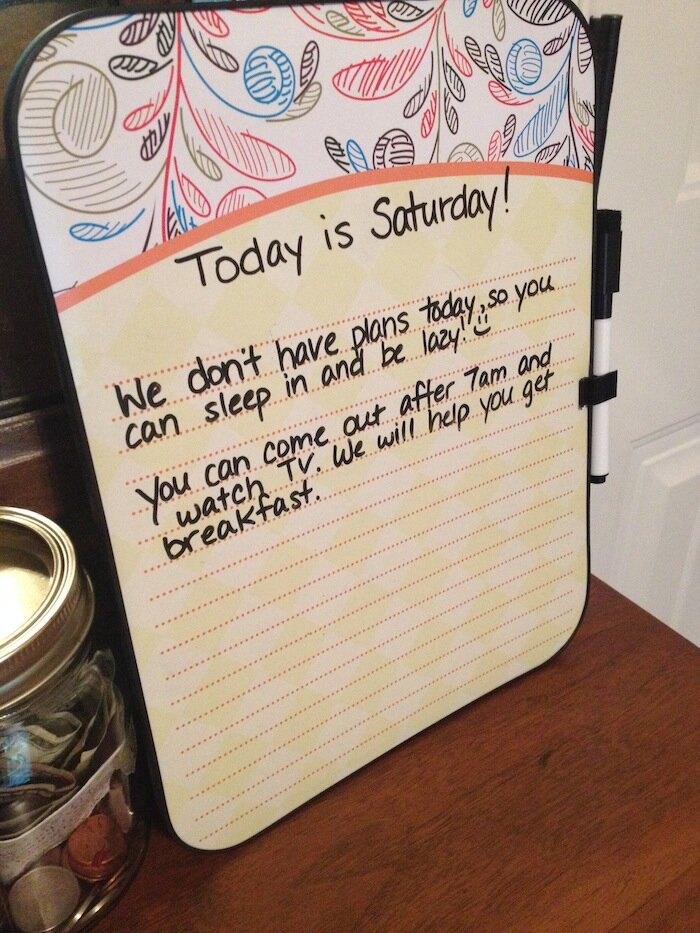 Today is Saturday!
We don't have plans today, so you
can sleep in and be lazy! :)
You can come out after 7am and
watch TV. We will help you get
breakfast.